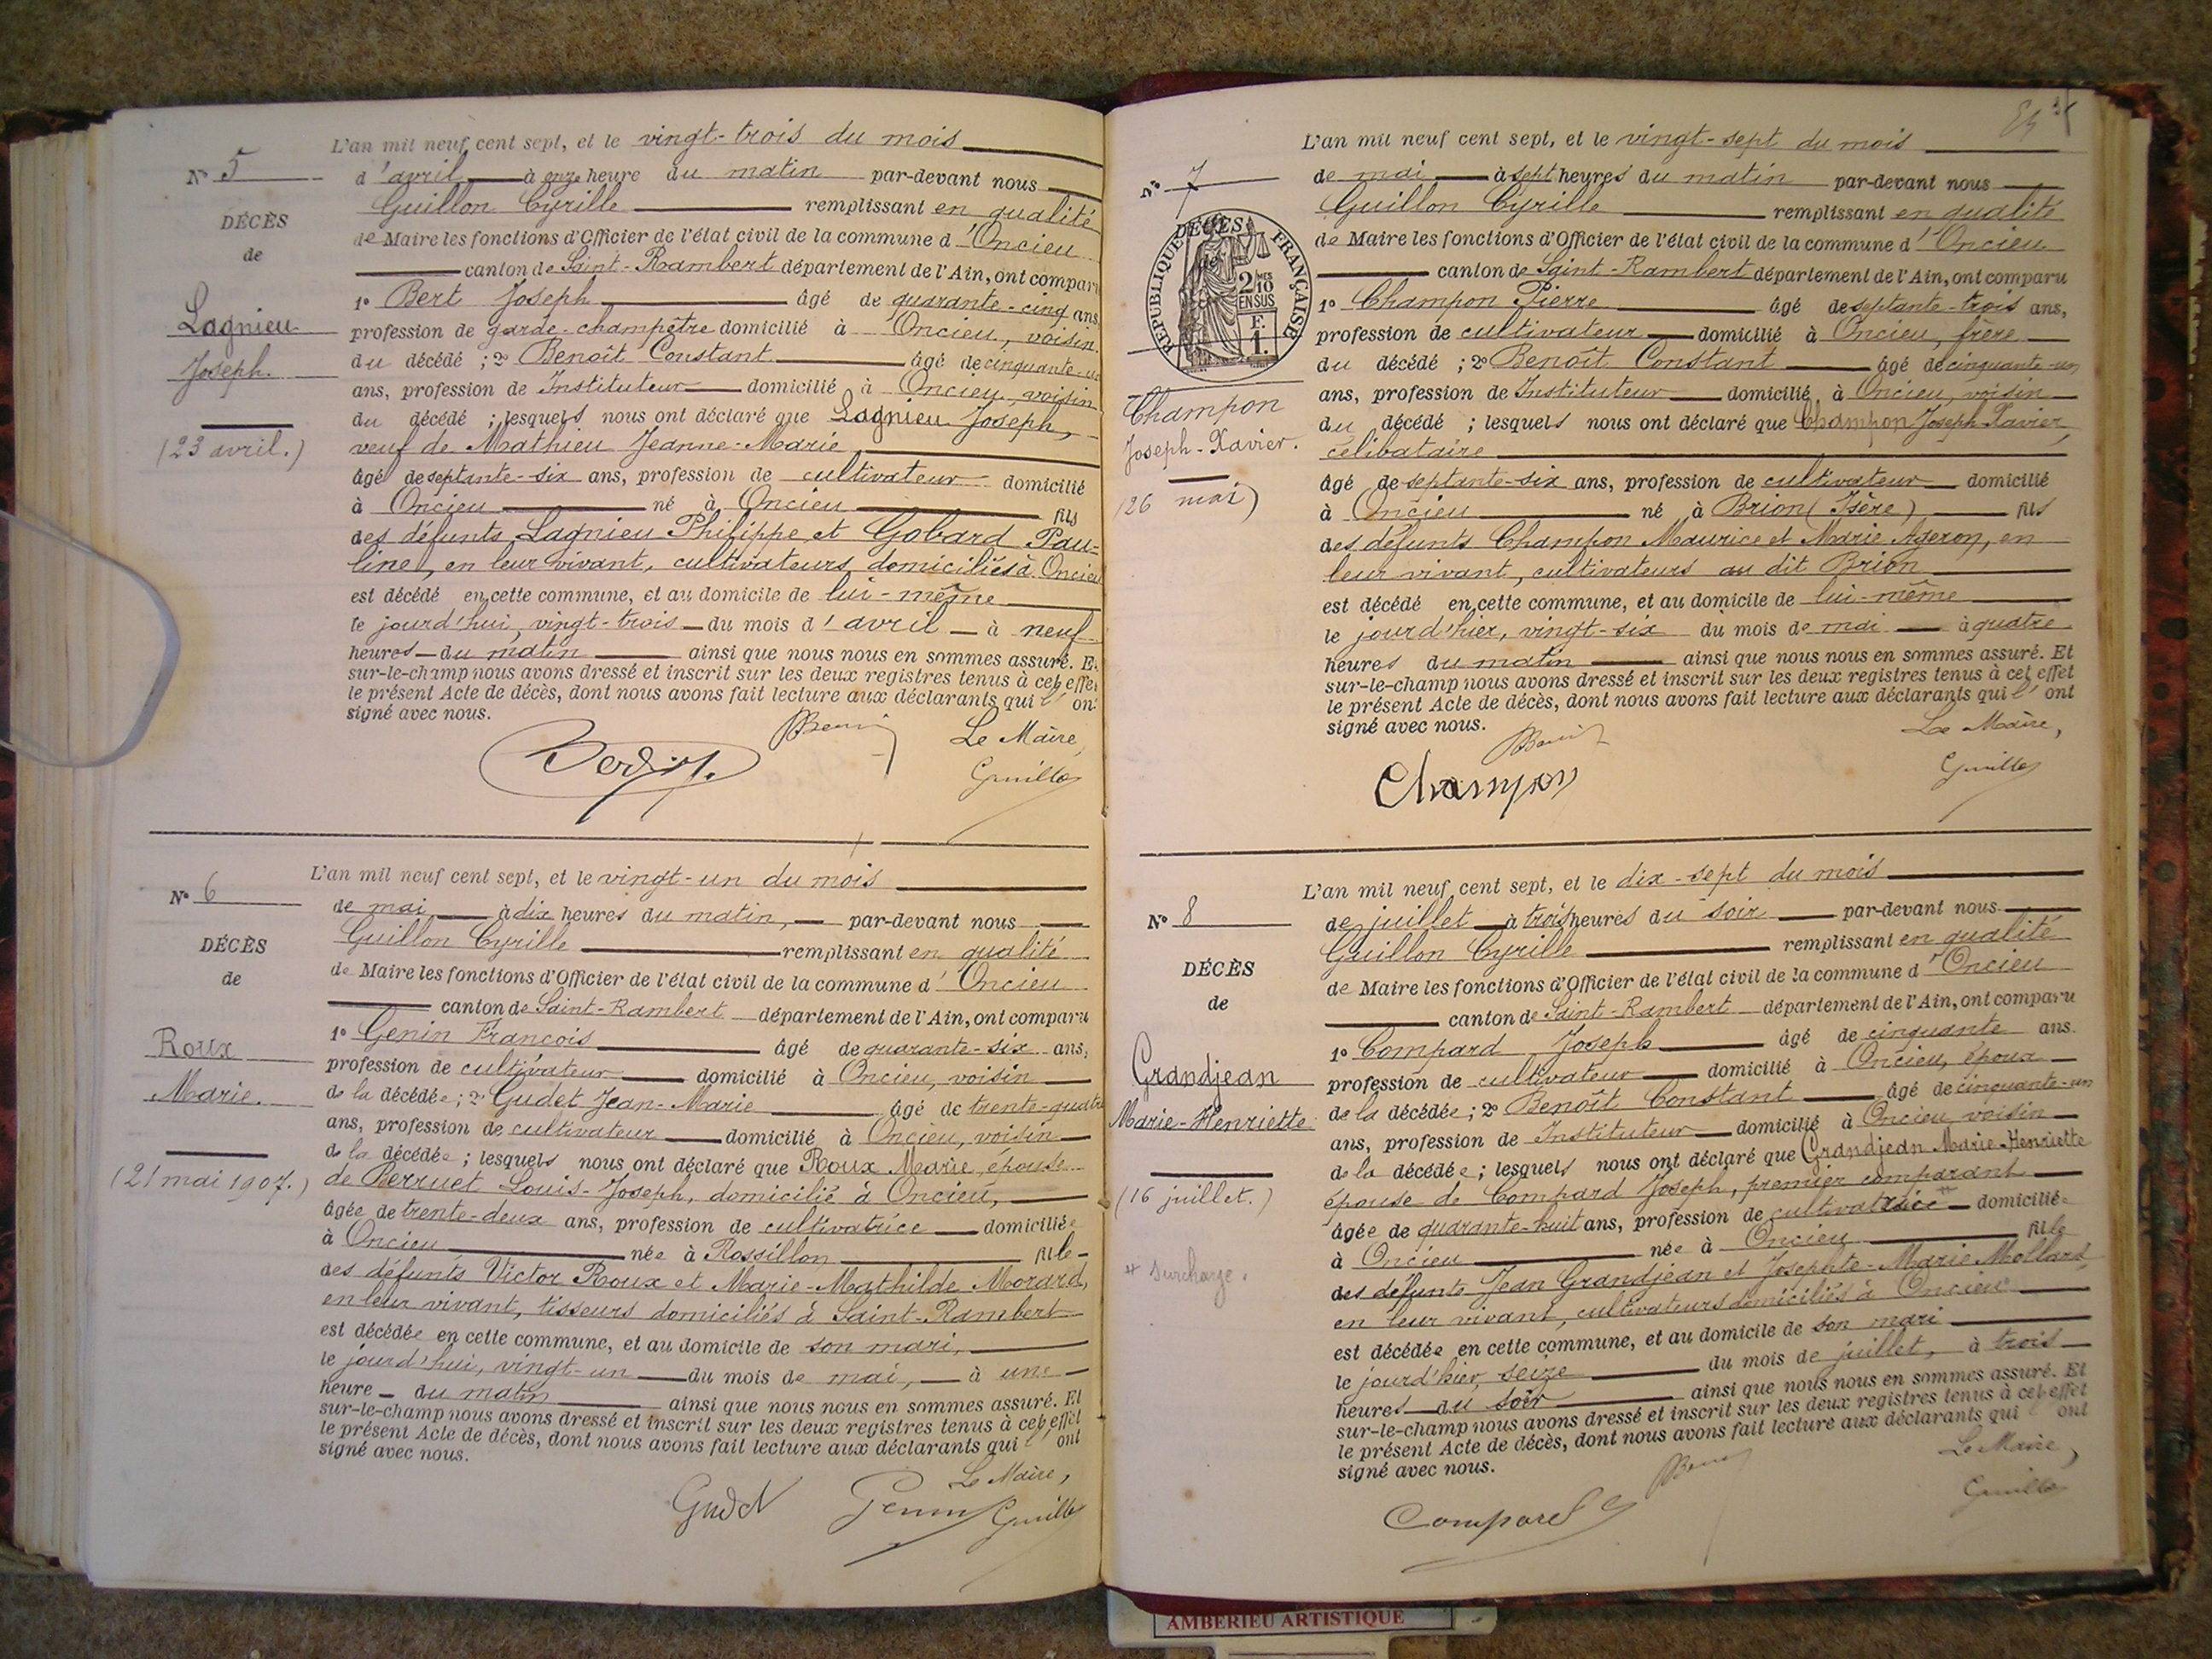 L'an mil neuf cent sept, et le vingt-trois du mois
N° 5
d'avril à onze heure du matin par-devant nous
Guillon Cyrille remplissant en qualité
DÉCÈS
de Maire les fonctions d'Officier de l'état civil de la commune d'Oncieu
de
canton de Saint-Rambert département de l'Ain, ont comparu
1° Bert Joseph âgé de quarante-cinq ans,
Lagnieu
profession de garde-champêtre domicilié à Oncieu, voisin
Joseph.
du décédé ; 2° Benoît Constant âgé de cinquante-un
ans, profession de Instituteur domicilié à Oncieu, voisin
du décédé ; lesquels nous ont déclaré que Lagnieu Joseph,
(23 avril.)
veuf de Mathieu Jeanne-Marie
âgé de septante-six ans, profession de cultivateur domicilié
à Oncieu né à Oncieu fils
des défunts Lagnieu Philippe et Gobard Pau-
line, en leur vivant, cultivateurs domiciliés à Oncieu
est décédé en cette commune, et au domicile de lui-même
le jourd'hui, vingt-trois du mois d'avril à neuf
heures du matin ainsi que nous nous en sommes assuré. Et
sur-le-champ nous avons dressé et inscrit sur les deux registres tenus à cet effet
le présent Acte de décès, dont nous avons fait lecture aux déclarants qui l'ont
signé avec nous.
Le Maire,
Guillon
L'an mil neuf cent sept, et le vingt-un du mois
N° 6
de mai à dix heures du matin, par-devant nous
Guillon Cyrille remplissant en qualité
DÉCÈS
de Maire les fonctions d'Officier de l'état civil de la commune d'Oncieu
de
canton de Saint-Rambert département de l'Ain, ont comparu
1° Genin François âgé de quarante-six ans,
Roux
profession de cultivateur domicilié à Oncieu, voisin
Marie.
de la décédée ; 2° Gudet Jean-Marie âgé de trente-quatre
ans, profession de cultivateur domicilié à Oncieu, voisin
de la décédée ; lesquels nous ont déclaré que Roux Marie, épouse
(21 mai 1907.)
de Berruet Louis-Joseph, domicilié à Oncieu,
âgée de trente-deux ans, profession de cultivatrice domiciliée
à Oncieu née à Rossillon fille
des défunts Victor Roux et Marie-Mathilde Morard,
en leur vivant, tisseurs domiciliés à Saint-Rambert
est décédée en cette commune, et au domicile de son mari,
le jourd'hui, vingt-un du mois de mai, à une
heure du matin ainsi que nous nous en sommes assuré. Et
sur-le-champ nous avons dressé et inscrit sur les deux registres tenus à cet effet
le présent Acte de décès, dont nous avons fait lecture aux déclarants qui l'ont
signé avec nous.
Le Maire,
Gudet Genin Guillon
L'an mil neuf cent sept, et le vingt-sept du mois
N° 7
de mai à sept heures du matin par-devant nous
Guillon Cyrille remplissant en qualité
DÉCÈS
de
RÉPUBLIQUE FRANÇAISE
2/10 MES
EN SUS
F.
1.
de Maire les fonctions d'Officier de l'état civil de la commune d'Oncieu
canton de Saint-Rambert département de l'Ain, ont comparu
1° Champon Pierre âgé de septante-trois ans,
profession de cultivateur domicilié à Oncieu, frère
du décédé ; 2° Benoît Constant âgé de cinquante-un
ans, profession de Instituteur domicilié à Oncieu, voisin
Champon
du décédé ; lesquels nous ont déclaré que Champon Joseph Xavier,
Joseph-Xavier.
célibataire
âgé de septante-six ans, profession de cultivateur domicilié
(26 mai)
à Oncieu né à Brion (Isère) fils
des défunts Champon Maurice et Marie Ageron, en
leur vivant, cultivateurs au dit Brion
est décédé en cette commune, et au domicile de lui-même
le jourd'hier, vingt-six du mois de mai à quatre
heures du matin ainsi que nous nous en sommes assuré. Et
sur-le-champ nous avons dressé et inscrit sur les deux registres tenus à cet effet
le présent Acte de décès, dont nous avons fait lecture aux déclarants qui l'ont
signé avec nous.
Le Maire,
Champon
Guillon
L'an mil neuf cent sept, et le dix-sept du mois
N° 8
de juillet à trois heures du soir par-devant nous
Guillon Cyrille remplissant en qualité
DÉCÈS
de Maire les fonctions d'Officier de l'état civil de la commune d'Oncieu
de
canton de Saint-Rambert département de l'Ain, ont comparu
1° Compard Joseph âgé de cinquante ans.
Grandjean
profession de cultivateur domicilié à Oncieu, époux
Marie-Henriette
de la décédée ; 2° Benoît Constant âgé de cinquante-un
ans, profession de Instituteur domicilié à Oncieu voisin
de la décédée ; lesquels nous ont déclaré que Grandjean Marie-Henriette
(16 juillet.)
épouse de Compard Joseph, premier comparant
âgée de quarante-huit ans, profession de cultivatrice # domiciliée
à Oncieu née à Oncieu fille
# Surcharge.
des défunts Jean Grandjean et Josephte-Marie Mollard,
en leur vivant, cultivateurs domiciliés à Oncieu
est décédée en cette commune, et au domicile de son mari
le jourd'hier, seize du mois de juillet, à trois
heures du soir ainsi que nous nous en sommes assuré. Et
sur-le-champ nous avons dressé et inscrit sur les deux registres tenus à cet effet
le présent Acte de décès, dont nous avons fait lecture aux déclarants qui l'ont
signé avec nous.
Le Maire,
Compard
Guillon
AMBERIEU ARTISTIQUE